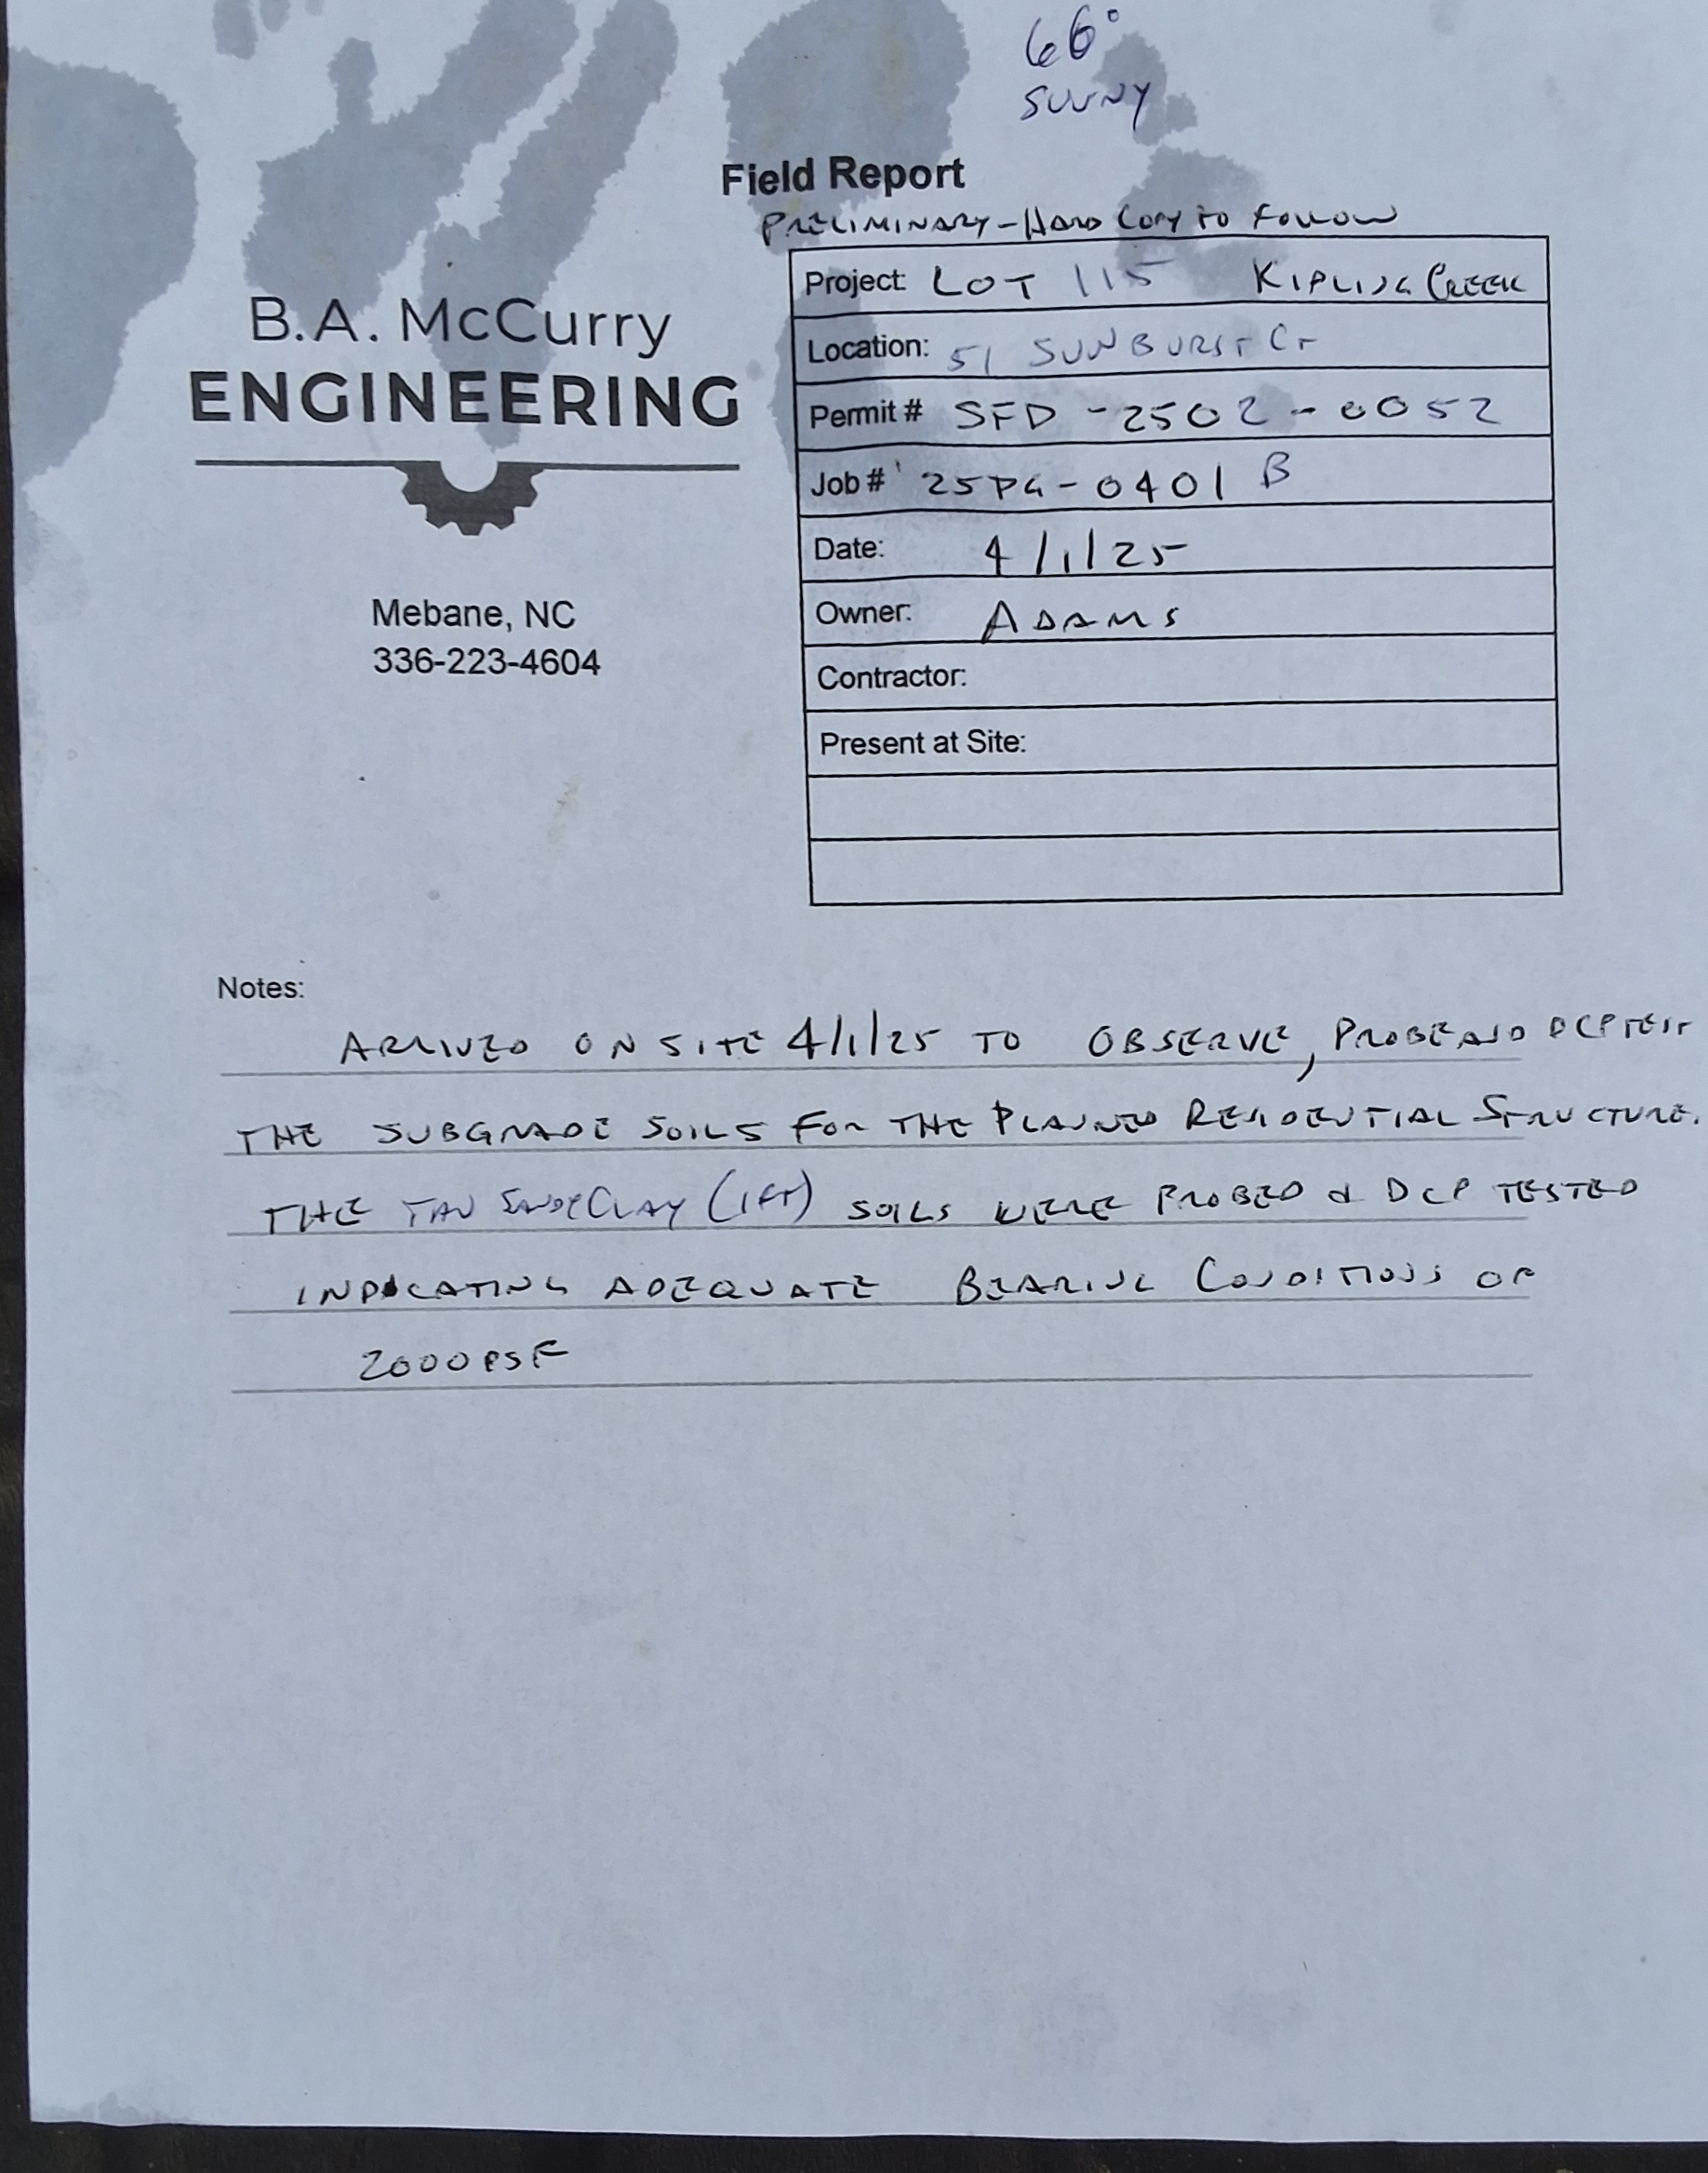 66°
SUNNY
Field Report
PRELIMINARY - HARD COPY TO FOLLOW
B.A. McCurry
ENGINEERING
Mebane, NC
336-223-4604
Project: LOT 115 KIPLING CREEK
Location: 51 SUNBURST CT
Permit # SFD - 2502 - 0052
Job # 25PG-0401 B
Date: 4/1/25
Owner: ADAMS
Contractor:
Present at Site:
Notes:
ARRIVED ON SITE 4/1/25 TO OBSERVE, PROBE AND DCP TEST
THE SUBGRADE SOILS FOR THE PLANNED RESIDENTIAL STRUCTURE.
THE TAN SANDY CLAY (1FT) SOILS WERE PROBED & DCP TESTED
INDICATING ADEQUATE BEARING CONDITIONS OF
2000 PSF